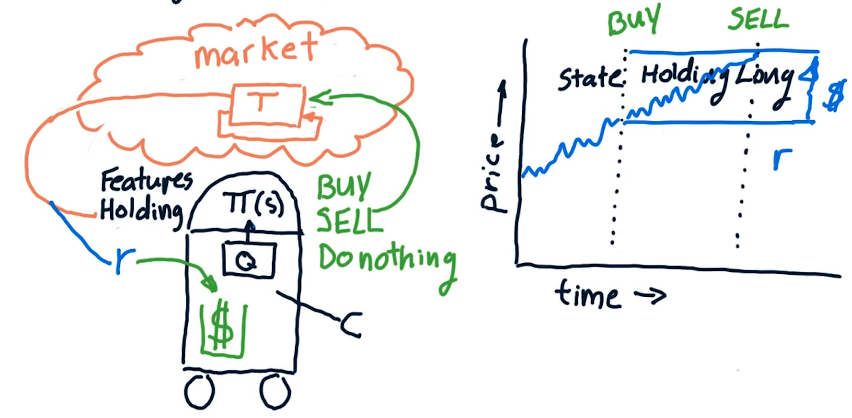 market
T
Features
Holding
π(s)
BUY
SELL
Do nothing
Q
r
$
C
BUY
SELL
State: Holding Long
$
r
price
time